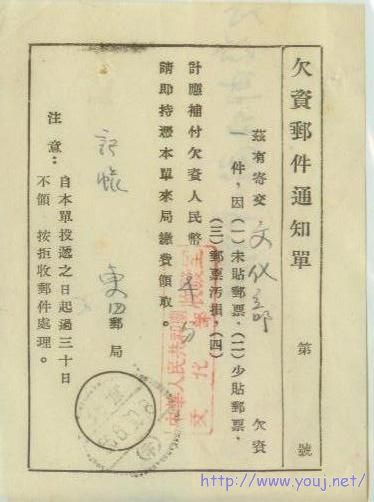 欠資郵件通知單 第 號
茲有寄交 文化部 欠資
一件，因（一）未貼郵票，（二）少貼郵票，
（三）郵票汚損，（四）
計應補付欠資人民幣 分
請即持憑本單來局繳費領取。
記帳
東四郵局
注意：自本單投遞之日起過三十日
不領 按拒收郵件處理。
中華人民共和國
文化部
http://www.youj.net/